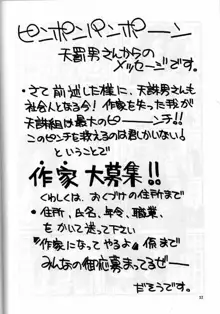 ピンポンパンポーン
天罰男さんからの
メッセージです。
・さて前述した様に、天誅男さんも
社会人となる今！作家を失った我が
天誅組は最大のピーーンチ!!
このピンチを救えるのは君しかいない！
ということで
作家大募集!!
くわしくは、おくづけの住所まで
・住所、氏名、年令、職業、
をかいて送って下さい
"作家になってやるよ"係まで
みんなの御応募まってるぜー
だそうです。